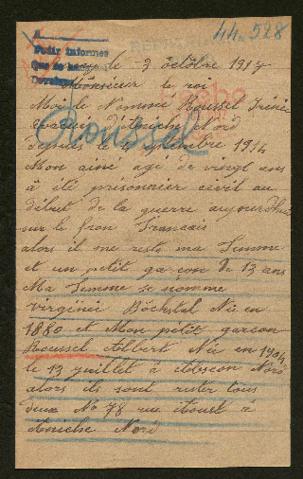 44.528
A
Pedir informes
Que se
le 3 octôbre 1917
Monsieur le roi
Moi le Nommé Roussel Irénée
d'Aniche Nord
Roussel
depuis le septembre 1914
Mon ainé agé de vingt ans
à été prisonnier civil au
début de la guerre aujourdhui
sur le fron Francais
alors il me reste ma Femme
et un petit garcon de 13 ans
Ma Femme se nomme
virginée Née en
1880 et Mon petit garcon
Roussel Albert Née en 1904
le 13 juillet à Nord
alors ils sont rester tous
deux No 78 rue à
Aniche Nord